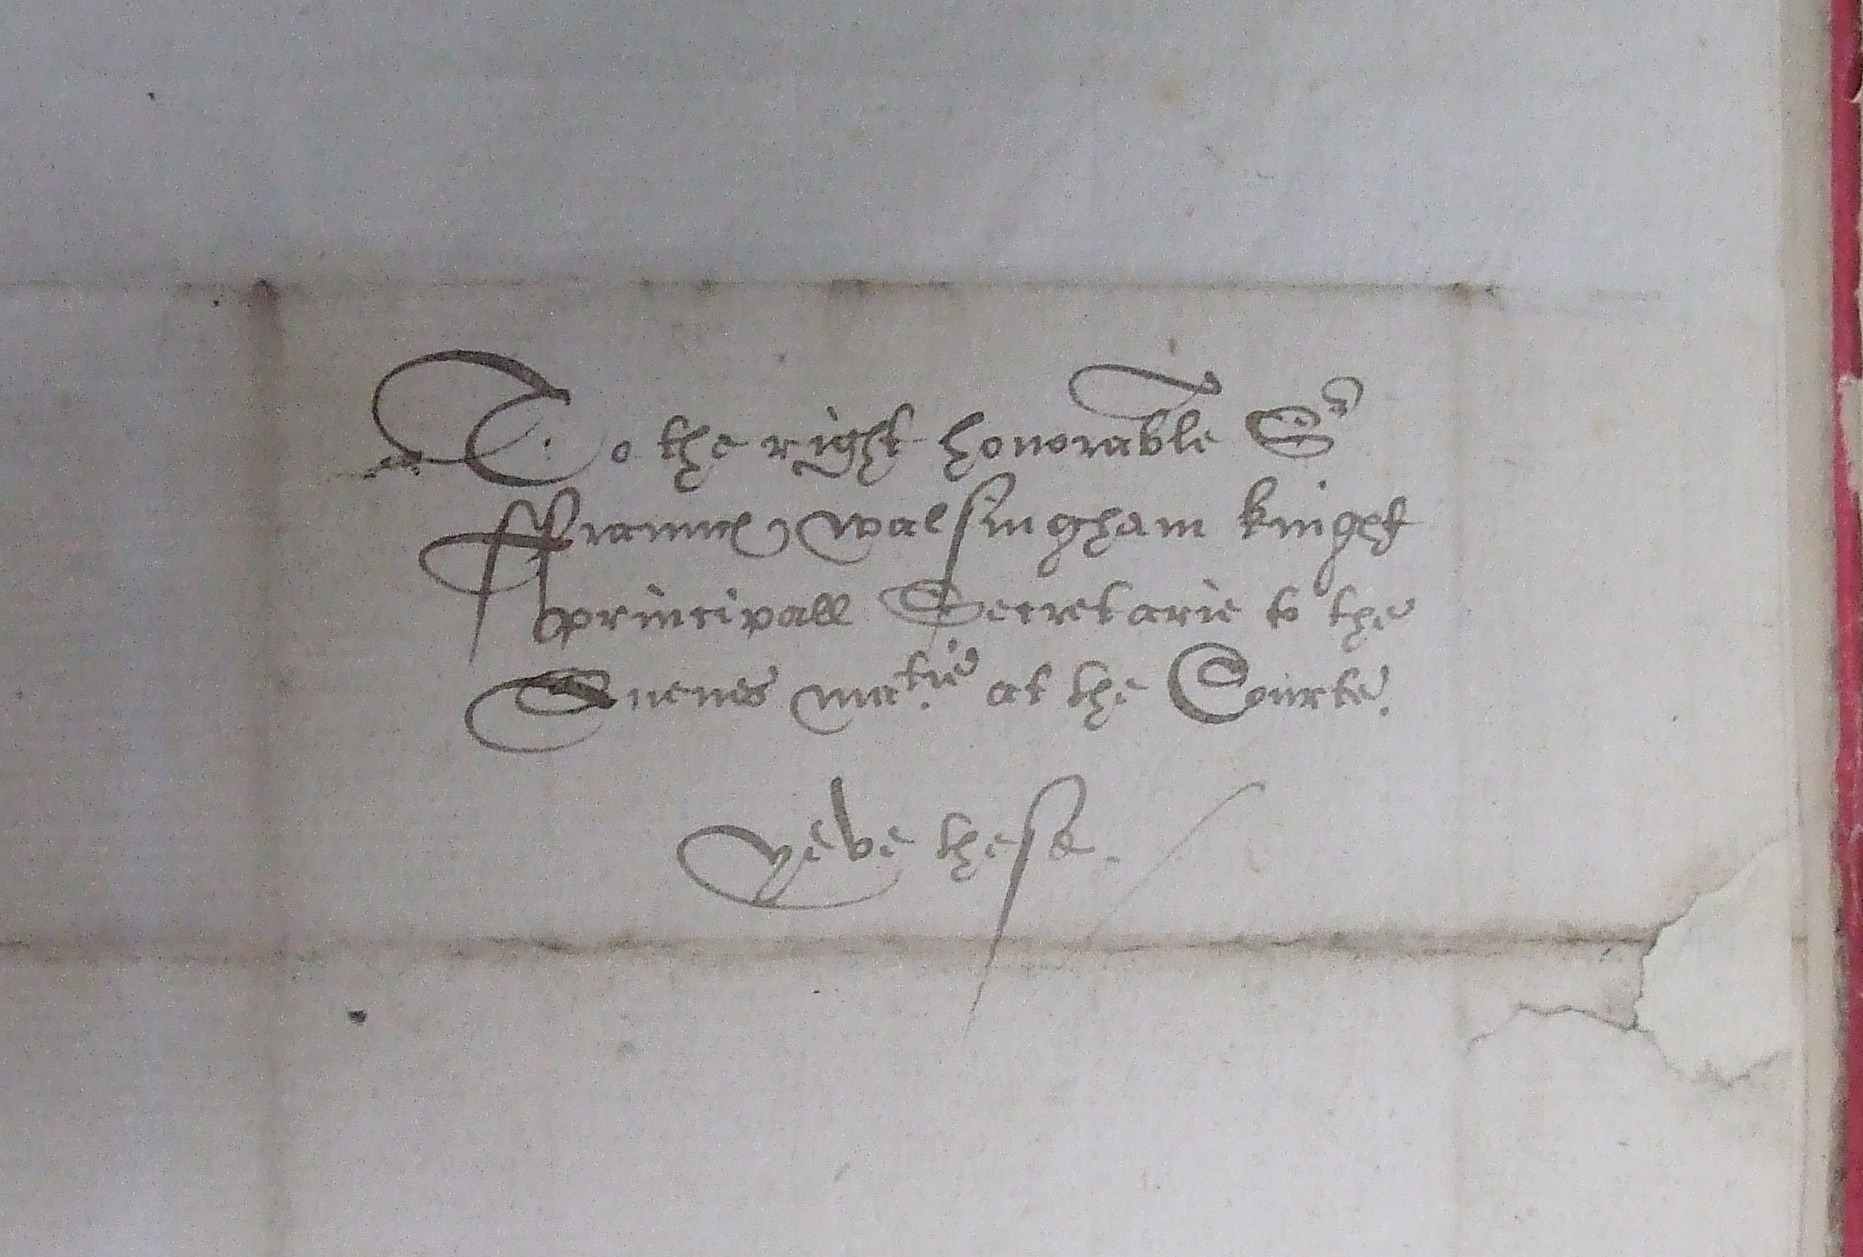 To the right honorable Sr
ffrauncis walsingham knight
principall Secretarie to the
Quenes matie. at the Courte.
yeve these.